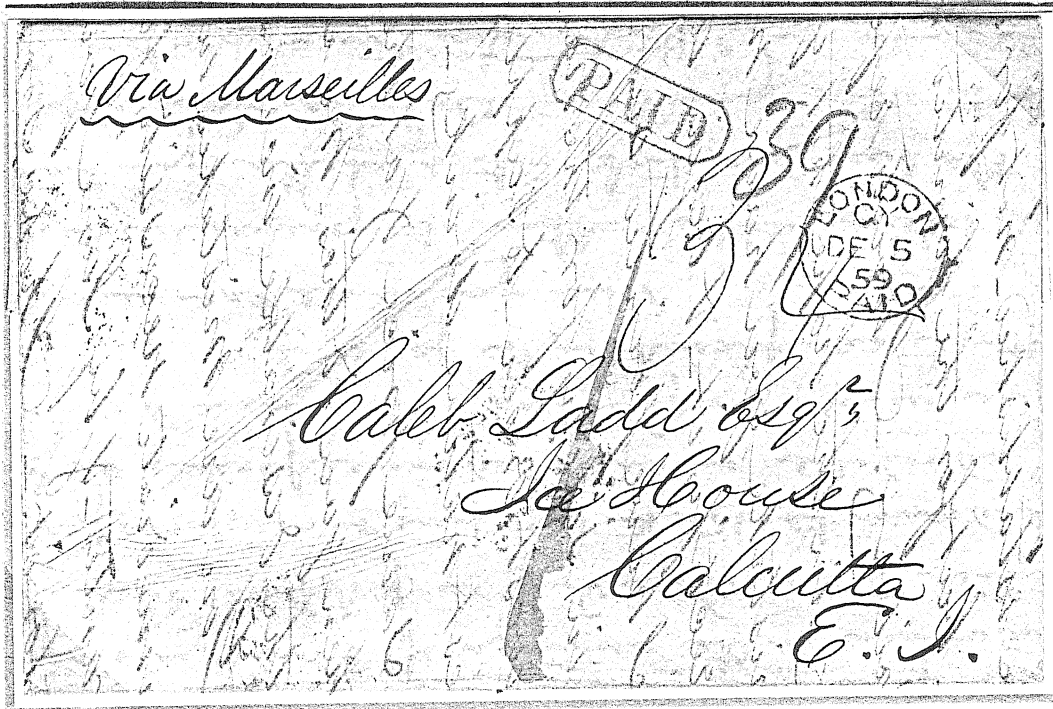 Via Marseilles
PAID
39
LONDON
CY
DE 5
59
PAID
3
Caleb Ladd Esqr,
Ice House
Calcutta
E. I.